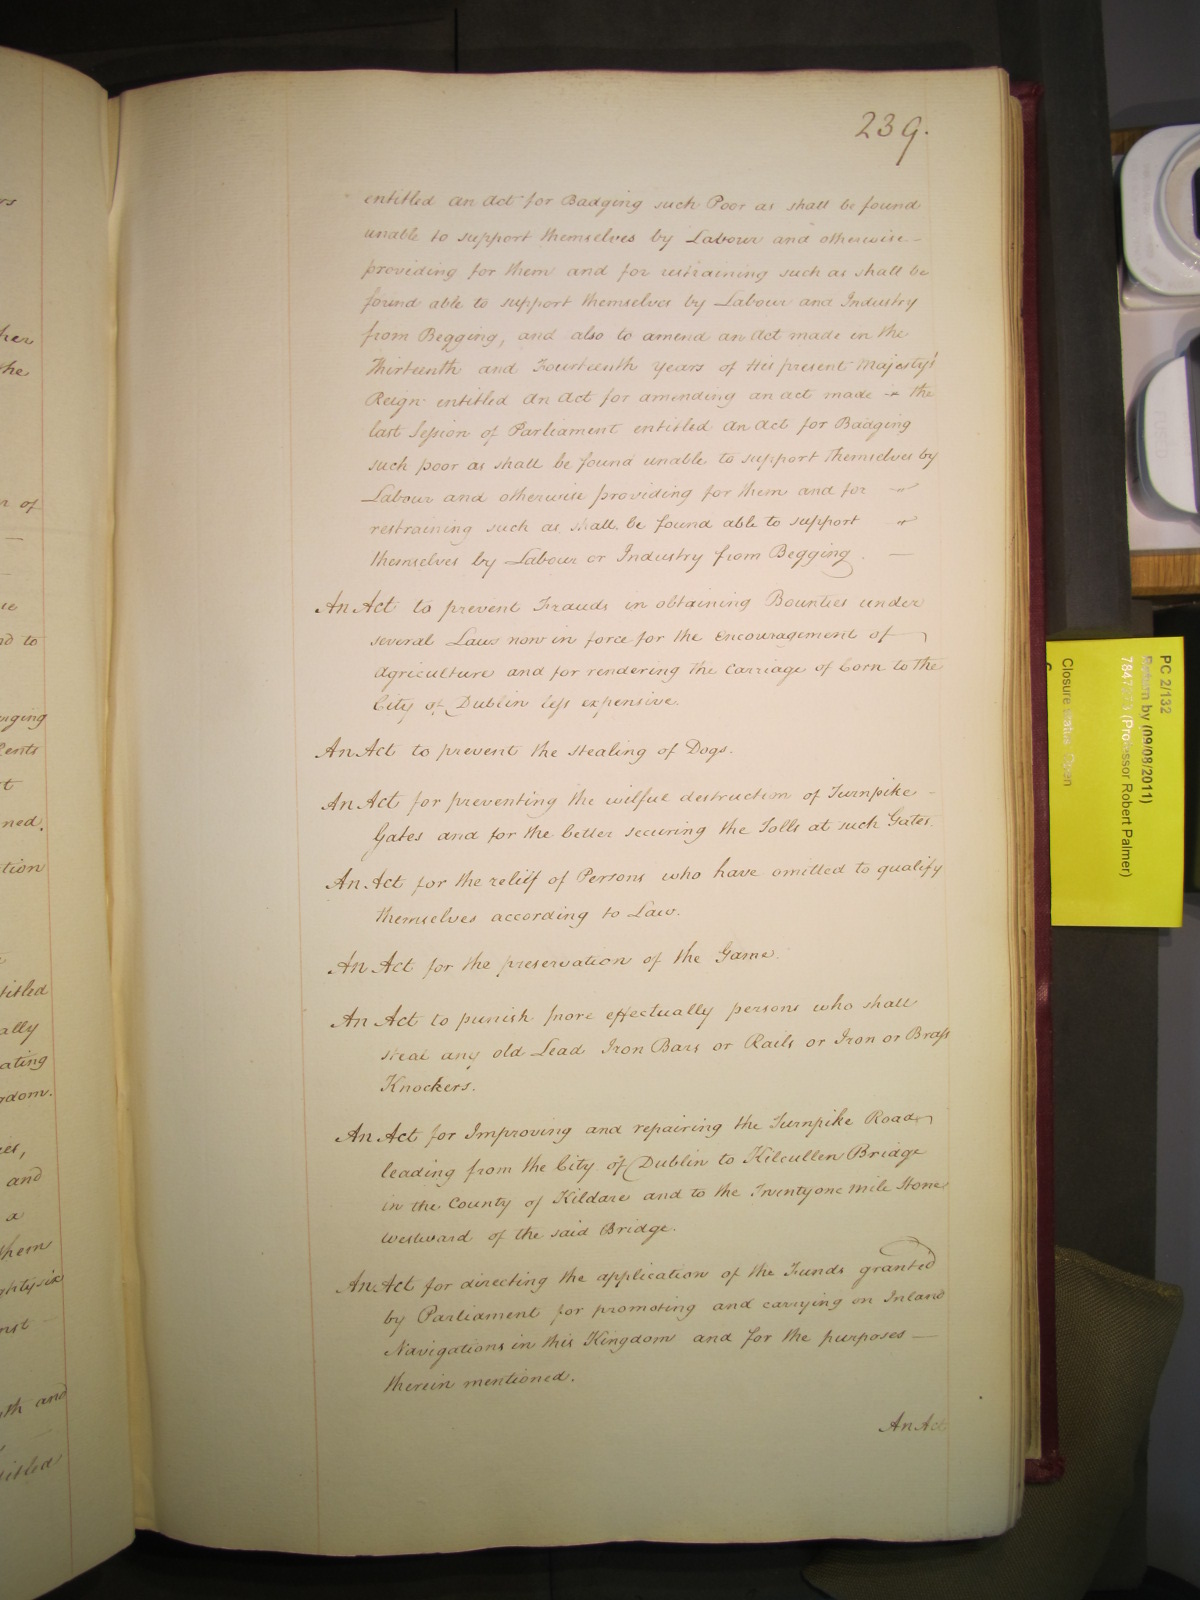 239.
entitled an Act for Badging such Poor as shall be found
unable to support themselves by Labour and otherwise
providing for them and for restraining such as shall be
found able to support themselves by Labour and Industry
from Begging, and also to amend an Act made in the
Thirteenth and Fourteenth Years of His present Majesty's
Reign entitled An Act for amending an act made in the
last Session of Parliament entitled An Act for Badging
such poor as shall be found unable to support themselves by
Labour and otherwise providing for them and for
restraining such as shall be found able to support
themselves by Labour or Industry from Begging.
An Act to prevent Frauds in obtaining Bounties under
several Laws now in force for the encouragement of
Agriculture and for rendering the Carriage of Corn to the
City of Dublin less expensive.
An Act to prevent the stealing of Dogs.
An Act for preventing the wilful destruction of Turnpike
Gates and for the better securing the Tolls at such Gates.
An Act for the relief of Persons who have omitted to qualify
themselves according to Law.
An Act for the preservation of the Game.
An Act to punish more effectually persons who shall
steal any old Lead Iron Bars or Rails or Iron or Brass
Knockers.
An Act for Improving and repairing the Turnpike Road
leading from the City of Dublin to Kilcullen Bridge
in the County of Kildare and to the Twentyone mile Stone
Westward of the said Bridge.
An Act for directing the application of the Funds granted
by Parliament for promoting and carrying on Inland
Navigations in this Kingdom and for the purposes
therein mentioned.
An Act
her
the
of
nd to
ned.
tion
titled
ally
ating
and
a
them
ghtysix
th and
titled
PC 2/132
Return by (09/08/2011)
(Professor Robert Palmer)
Closure status: Open